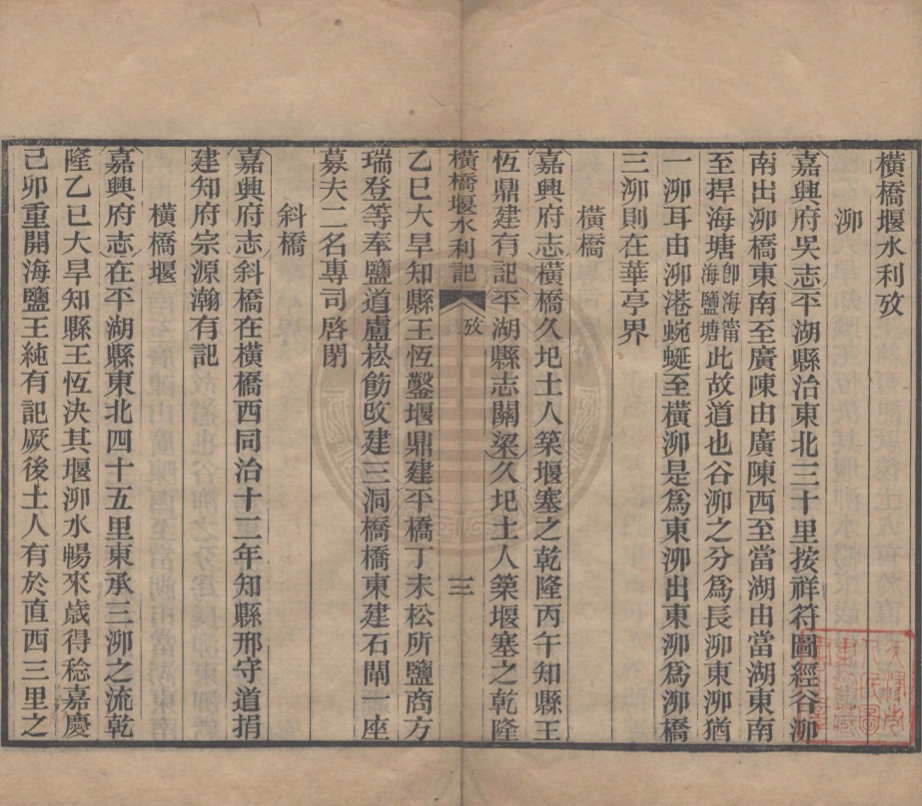 橫橋堰水利攷
泖
嘉興府吳志平湖縣治東北三十里按祥符圖經谷泖
南出泖橋東南至廣陳由廣陳西至當湖由當湖東南
至捍海塘卽海鹽塘此故道也谷泖之分爲長泖東泖猶
一泖耳由泖港蜿蜒至橫泖是爲東泖出東泖爲泖橋
三泖則在華亭界
橫橋
嘉興府志橫橋久圯土人築堰塞之乾隆丙午知縣王
恆鼎建有記平湖縣志關梁久圯土人築堰塞之乾隆
橫橋堰水利記 攷 三
乙巳大旱知縣王恆鑿堰鼎建平橋丁未松所鹽商方
瑞登等奉鹽道盧崧飭改建三洞橋橋東建石閘一座
募夫二名專司啓閉
斜橋
嘉興府志斜橋在橫橋西同治十二年知縣邢守道捐
建知府宗源瀚有記
橫橋堰
嘉興府志在平湖縣東北四十五里東承三泖之流乾
隆乙巳大旱知縣王恆決其堰泖水暢來歲得稔嘉慶
己卯重開海鹽王純有記厥後土人有於直西三里之